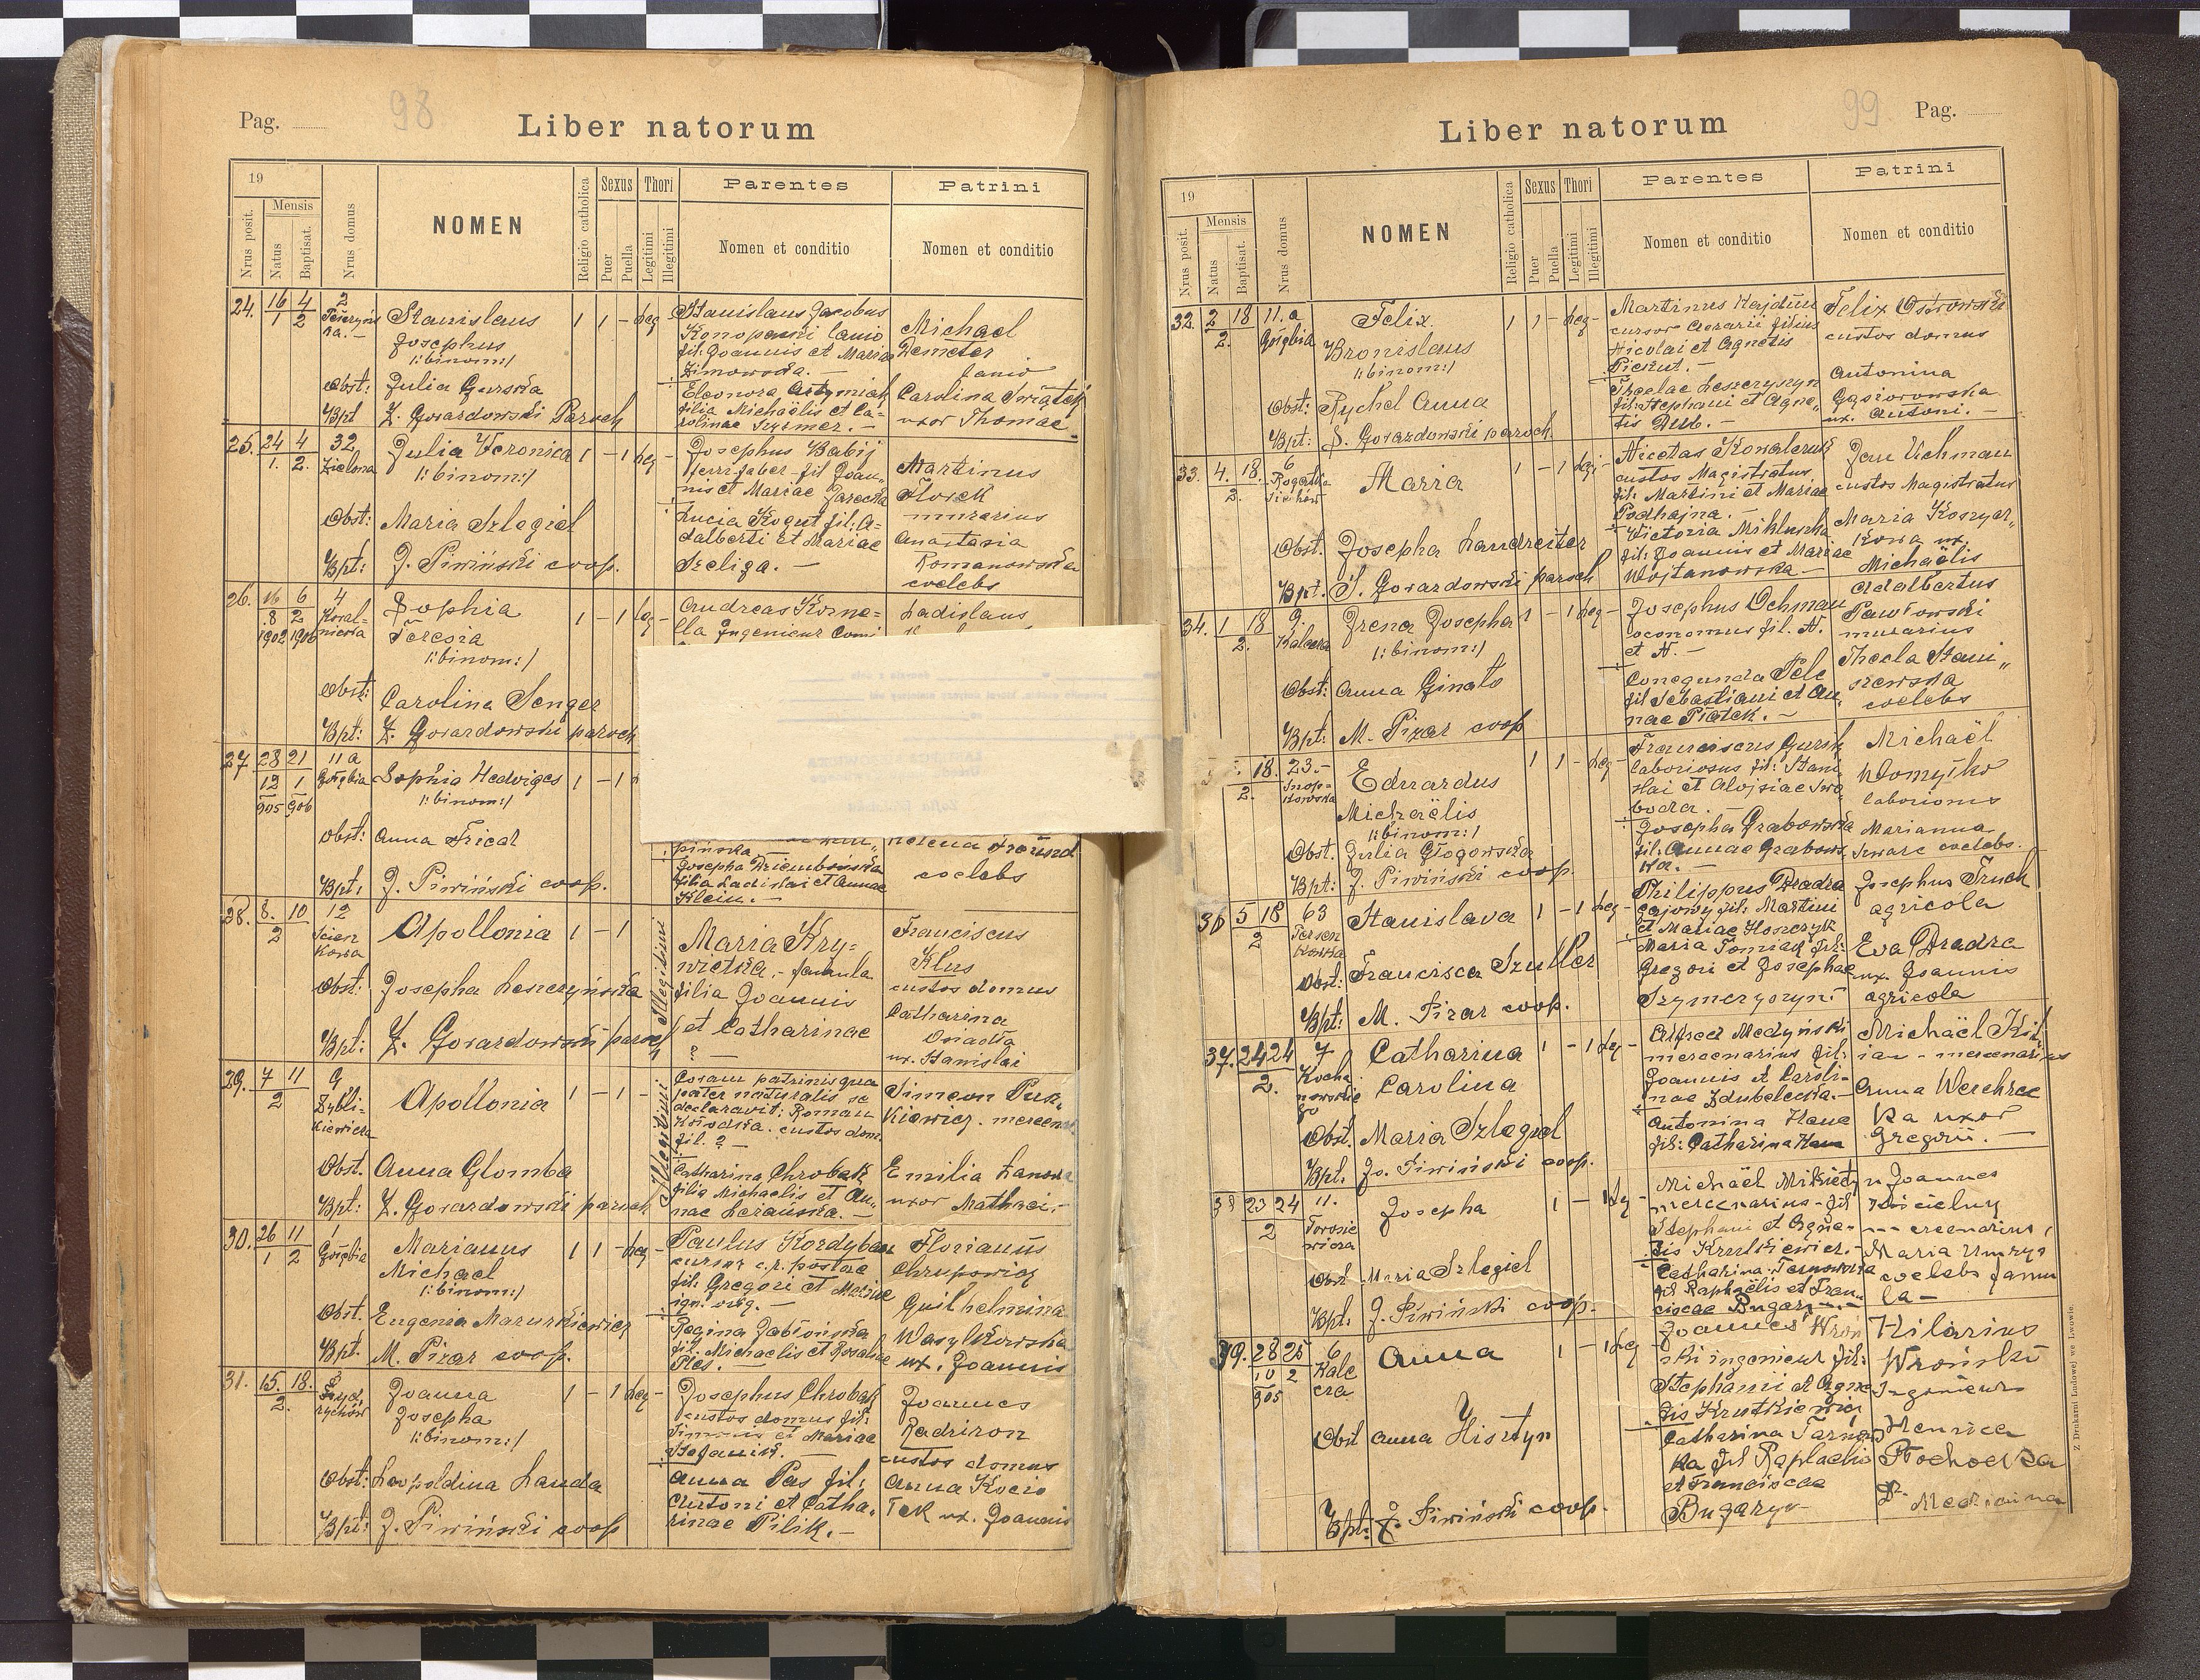 98
Pag.
Liber natorum
19
Nrus posit.
Mensis
Natus
Baptisat.
Nrus domus
NOMEN
Religio catholica
Sexus
Puer
Puella
Thori
Legitimi
Illegitimi
Parentes
Nomen et conditio
Patrini
Nomen et conditio
24. 16/1 4/2 2
Stanislaus
Josephus
/:binom:/
1 1 - leg -
Stanislaus Jacobus
Konopacki lanio
fil. Joannis et Maria
Zimowska. -
Eleonora Artymiak
filia Michaëlis et Ca=
rolinae Szysmer. -
Michael
Demeter
lanio
Carolina Świątek
uxor Thomae.
Obst: Julia Gurska
Bpt Z. Gorazdowski Paroch
25. 24/1. 4/2. 32
Zielona
Julia Veronica
/:binom:/
1 - 1 leg -
Josephus Babij
ferri faber - fil Joan=
nis et Mariae Jarecka
Lucia Kogut fil: A=
dalberti et Mariae
Szeliga. -
Martinus
Florek
murarius
Anastasia
Romanowska
coelebs
Obst: Maria Szlegiel
Bpt: J. Piwiński coop.
26. 16/8 1902 6/2 1906 4
Sophia
Teresia
/:binom:/
1 - 1 leg -
Andreas Korne=
lla Ingenieur
Ladislaus
Obst: Carolina Senger
Bpt: Z. Gorazdowski paroch
27 28/12 905 21/1. 906 11 a
Gołębia
Sophia Hedviges
/:binom:/
1 - 1
pińska
Josepha Dziembowska
filia Ladislai et Annae
Klein. -
Helena Freund
coelebs
Obst: Anna Frical
Bpt: J. Piwiński coop.
28. 8. 10/2 12
Apollonia
1 - 1
Illegitimi
Maria Kry=
wietka, - famula
filia Joannis
et Catharinae
? -
Franciscus
Klus
custos domus
Catharina
Osiadła
ux. Stanislai
Obst: Josepha Leszczyńska
Bpt: Z. Gorazdowski paroch
29. 7 11/2 9
Zybli=
kiewicza
Apollonia
1 - 1 -
Illegitimi
Coram patrinis qua
pater naturalis se
declaravit: Roman
custos dom.
fil. ? -
Catharina Chrobak
filia Michaelis et An=
nae Lezańska. -
Simeon Pusz=
kiewicz. mercen
Emilia
uxor Mathaei. -
Obst. Anna Glomba
Bpt: Z. Gorazdowski paroch
30. 26/1 11/2 1
Gołębia
Marianus
Michael
/:binom:/
1 1 - leg -
Paulus Kordyban
cursor c.r. postae
fil: Gregori et Mariae
ign: orig. -
Regina Jabłońska
fil. Michaelis et Rosaliae
Ples. -
Florianus
Chrupowicz
Guilhelmina
Wasylkowska
ux. Joannis
Obst. Eugenia Mazurkiewicz
Bpt. M. Pizar coop.
31. 15. 18./2. 8
Joanna
Josepha
/:binom:/
1 - 1 leg -
Josephus Chrobak
custos domus fil:
Simonis et Mariae
Stefanik. -
Anna Pas fil:
Antoni et Catha=
rinae Pilik. -
Joannes
Radziron
custos domus
Anna Kocio
Tek ux. Joannis
Obst: Leopoldina Landa
Bpt: J. Piwiński coop
99
Pag.
Liber natorum
19
Nrus posit.
Mensis
Natus
Baptisat.
Nrus domus
NOMEN
Religio catholica
Sexus
Puer
Puella
Thori
Legitimi
Illegitimi
Parentes
Nomen et conditio
Patrini
Nomen et conditio
32. 2 18/2. 11.a
Gołębia
Felix
Bronislaus
/:binom:/
1 1 - leg -
Martinus Hajduk
cursor aerarii filius
Nicolai et Agnetis
Pickut. -
Theclae Leszczyszyn
fil: Stephani et Agne=
tis Dub. -
Felix Ostrowski
custos domus
Antonina
Gąsiorowska
ux. Antoni. -
Obst: Rychel Anna
Bpt: S. Gorazdowski paroch.
33. 4. 18./2. 6
Rogatka
Maria
1 - 1 leg -
Nicetas Kowalczuk
custos Magistratus
fil: Martini et Mariae
Podhajna. -
Victoria Mikluszka
fil: Joannis et Mariae
Wojtanowska -
Jan Uchman
custos Magistratus
Maria Koszyar=
kowa ux.
Michaëlis
Obst. Josepha Landreiter
Bpt: S. Gorazdowski paroch
34. 1 18/2. 9.
Kalecza
Irena Josepha
/:binom:/
1 - 1 leg -
Josephus Ochman
oeconomus fil. N.
et N. -
Conegunda Pele
fil Sebastiani et An=
nae Piątek. -
Adalbertus
Pawłowski
murarius
Thecla Stani=
szewska
coelebs
Obst: Anna Ginalo
Bpt: M. Pizar coop
18./2. 23. -
Snop=
kowska
Eduardus
Michaëlis
/:binom:/
1 1 - leg -
Franciscus Gursk
laboriosus fil: Stani
slai et Aloisiae Swo
boda. -
Josepha Grabowska
fil. Annae Grabows
ka. -
Michaël
Womyśko
laboriosus
Marianna
Szwarc coelebs.
Obst. Julia Głogowska
Bpt: J. Piwiński coop.
36 5 18/2 63
Persen
kowka
Stanislava
1 - 1 leg -
Philippus Dradra
gajowy fil: Martini
et Mariae Hoszczyk
Maria Tomiak fil:
Gregori et Josephae
Szymczyszyn:
Josephus Truch
agricola
Eva Dradra
ux. Joannis
agricola
Obst: Francisca Szuller
Bpt: M. Pizar coop.
37. 24 24/2. 7
Kocha
nowskie
go
Catharina
Carolina
1 - 1 leg -
Alfred Medyński
mercenarius fil:
Joannis et Caroli=
nae Zdubelecka. -
Antonina Hana
fil: Catharina Hana
Michaël Kil
ian - mercenarius
Anna Werchrac
ka uxor
Gregorii. -
Obst. Maria Szlegiel
Bpt. Jo. Piwiński coop.
38 23 24/2 11.
Torosie
wicza
Josepha
1 - 1 leg -
Michaël
mercenarius - fil
Stephani et Agne-
tis Krutkiewicz. -
Catharina Tarnowska
fil Raphaëlis et Fran=
ciscae Bugary
Joannes
Kościelny
mercenarius,
Maria
coelebs famu
la -
Obst Maria Szlegiel
Bpt: J. Piwiński coop.
39. 28/10 905 25/2 6
Kale
cza
Anna
1 - 1 leg -
Joannes Wron
ski ingenieur fil:
Stephani et Agne
tis Krutkiewicz
Catharina Tarnows
ka fil Raphaelis
et Franciscae
Bugary
Hilarius
Wroński
Ingenieur
Henrica
Stochocka
Dr. Medicina
Obst Anna Hisztyn
Bpt: J. Piwiński coop.
Z Drukarni Ludowej we Lwowie.